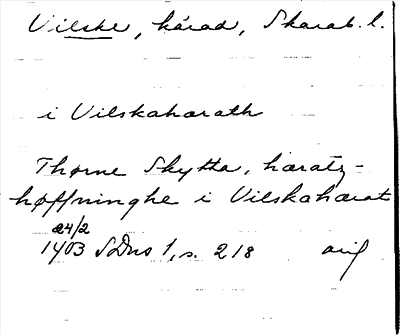 Vilske, härad, Skarab. l.
i Vilskahærath
Thorne Skytta, hæratz-
høffninghe i Vilskahærat
24/2
1403 SDns 1, s. 218 orig